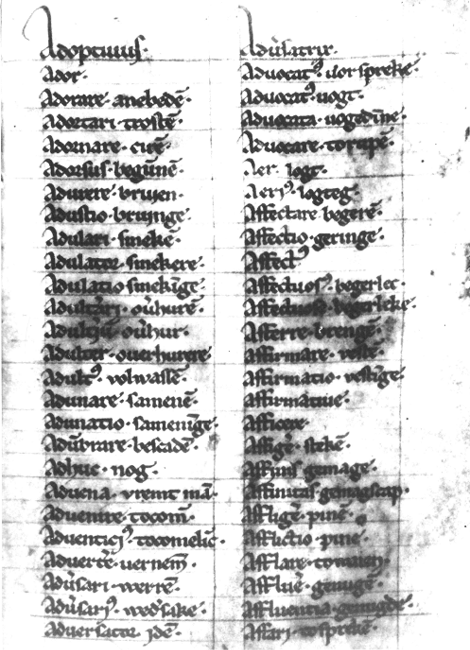 Adoptiuus·
Ador·
Adorare· anebedē·
Adortari· trostē·
Adornare· cirē·
Adorsus· begūnē·
Adurere· bruien·
Adustio· bruiinge·
Adulari· smekē·
Adulator· smekere·
Adulatio· smekīge·
ouhurē·
ouhur·
Adulter· ouerhurere
Adultꝰ· volwassē·
Adunare· samenē·
Adunatio· samenīge·
Adūbrare· bescadē·
Adhuc· nog·
Aduena· vremt mā·
Aduenire· tocom̄·
Aduenticiꝰ· tocomelic·
Aduertē· uernem̄·
Adūsari· werrē·
Adūsariꝰ· wedsake·
Aduersator· idē·
Adūsatrix·
Aduocatꝰ· uorspreke·
Aduocatꝰ· uogt·
Aduocata· uogedīne·
Aduocare· toropē·
Aer· logt·
Aeriꝰ· logteg·
Affectare· begerē·
Affectio· geringe·
Affectꝰ
Affectuosꝰ· begerlec·
begerleke·
Afferre· brengē·
Affirmare· veste·
Affirmatio· vestīge·
Affirmatiue·
Afficere·
Affigē· stekē·
Affinis· gemage·
Affinitas· gemagscap·
Affligē· pinē·
Afflictio· pine·
Afflare·
Affluē· genugē·
Affluentia· genugde·
Affari· tosprekē·